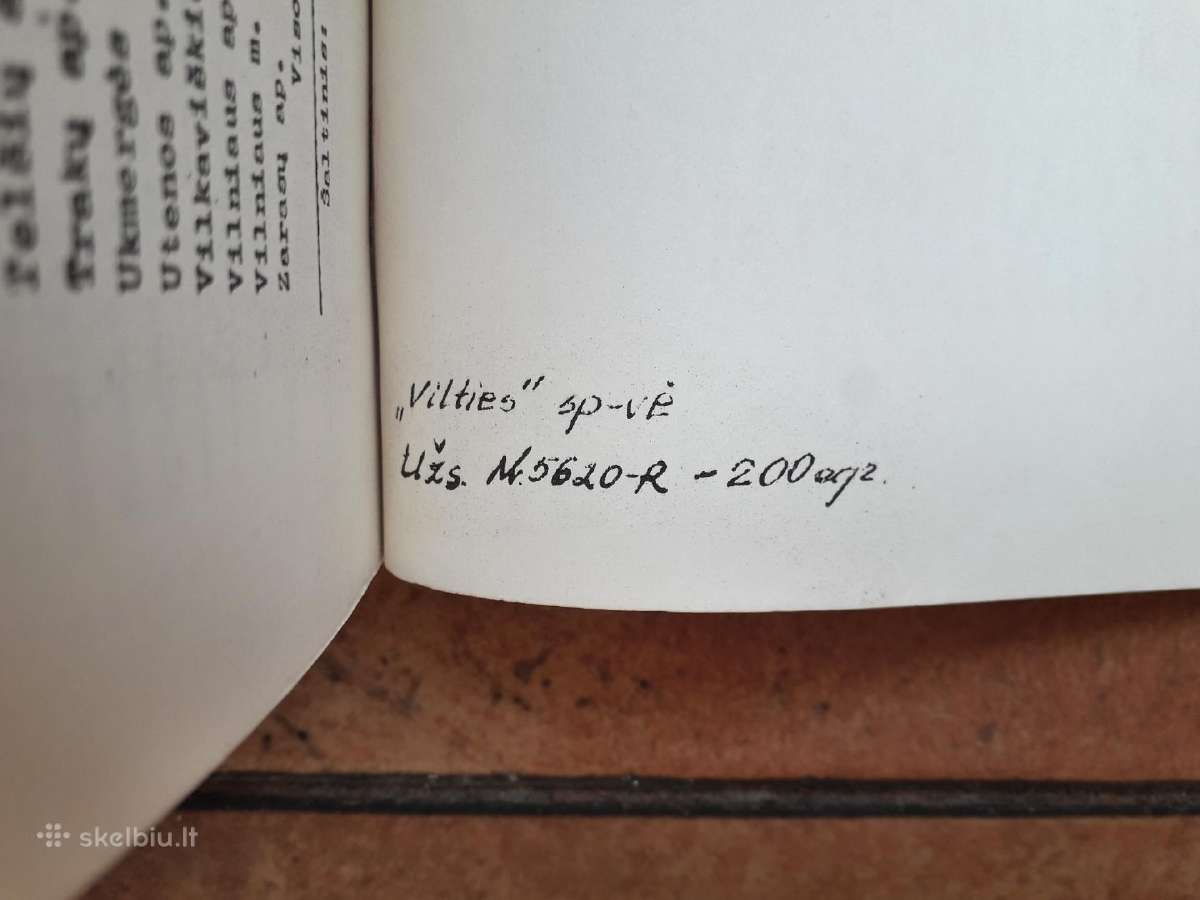 Telšių
Traky ap.
Ukmergės
Utenos ap.
Vilkaviški
Vilniaus ap
Vilniaus m.
Zarasų ap.
Viso
Šaltinis:
„Vilties" sp-vė
Užs. Nr. 5620-R - 200 egz.
skelbiu.lt